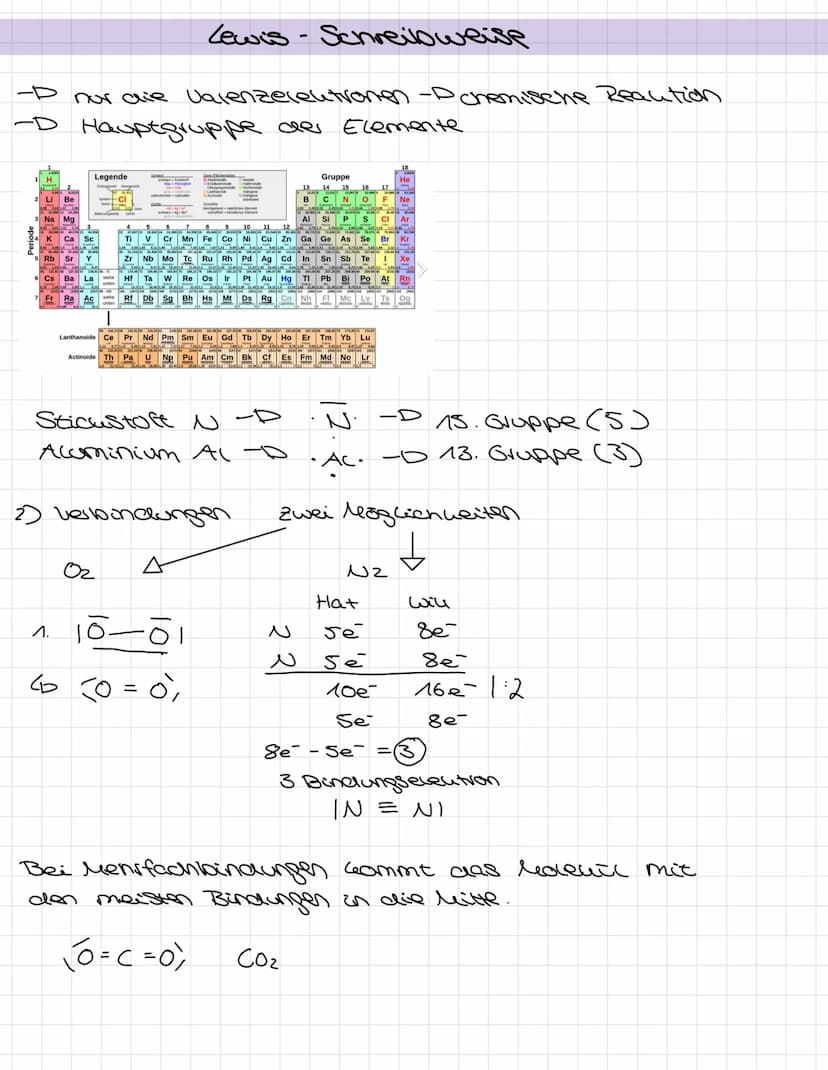 Lewis - Schreibweise
→ nur die Valenzelektronen → chemische Reaktion
→ Hauptgruppe der Elemente
Legende
Gruppe
Periode
1 18
1 H He
2 13 14 15 16 17
2 Li Be B C N O F Ne
3 Na Mg Al Si P S Cl Ar
3 4 5 6 7 8 9 10 11 12
4 K Ca Sc Ti V Cr Mn Fe Co Ni Cu Zn Ga Ge As Se Br Kr
5 Rb Sr Y Zr Nb Mo Tc Ru Rh Pd Ag Cd In Sn Sb Te I Xe
6 Cs Ba La siehe unten Hf Ta W Re Os Ir Pt Au Hg Tl Pb Bi Po At Rn
7 Fr Ra Ac siehe unten Rf Db Sg Bh Hs Mt Ds Rg Cn Nh Fl Mc Lv Ts Og
Lanthanoide Ce Pr Nd Pm Sm Eu Gd Tb Dy Ho Er Tm Yb Lu
Actinoide Th Pa U Np Pu Am Cm Bk Cf Es Fm Md No Lr
Stickstoff N → ·N· → 15. Gruppe (5)
Aluminium Al → ·Al· → 13. Gruppe (3)
2) Verbindungen zwei Möglichkeiten
O2 N2
Hat Will
1. |O—O| N 5e⁻ 8e⁻
N 5e⁻ 8e⁻
↳ O = O 10e⁻ 16e⁻ |:2
5e⁻ 8e⁻
8e⁻ - 5e⁻ = 3
3 Bindungselektron
|N ≡ N|
Bei Mehrfachbindungen kommt das Molekül mit
den meisten Bindungen in die Mitte.
O = C = O CO2